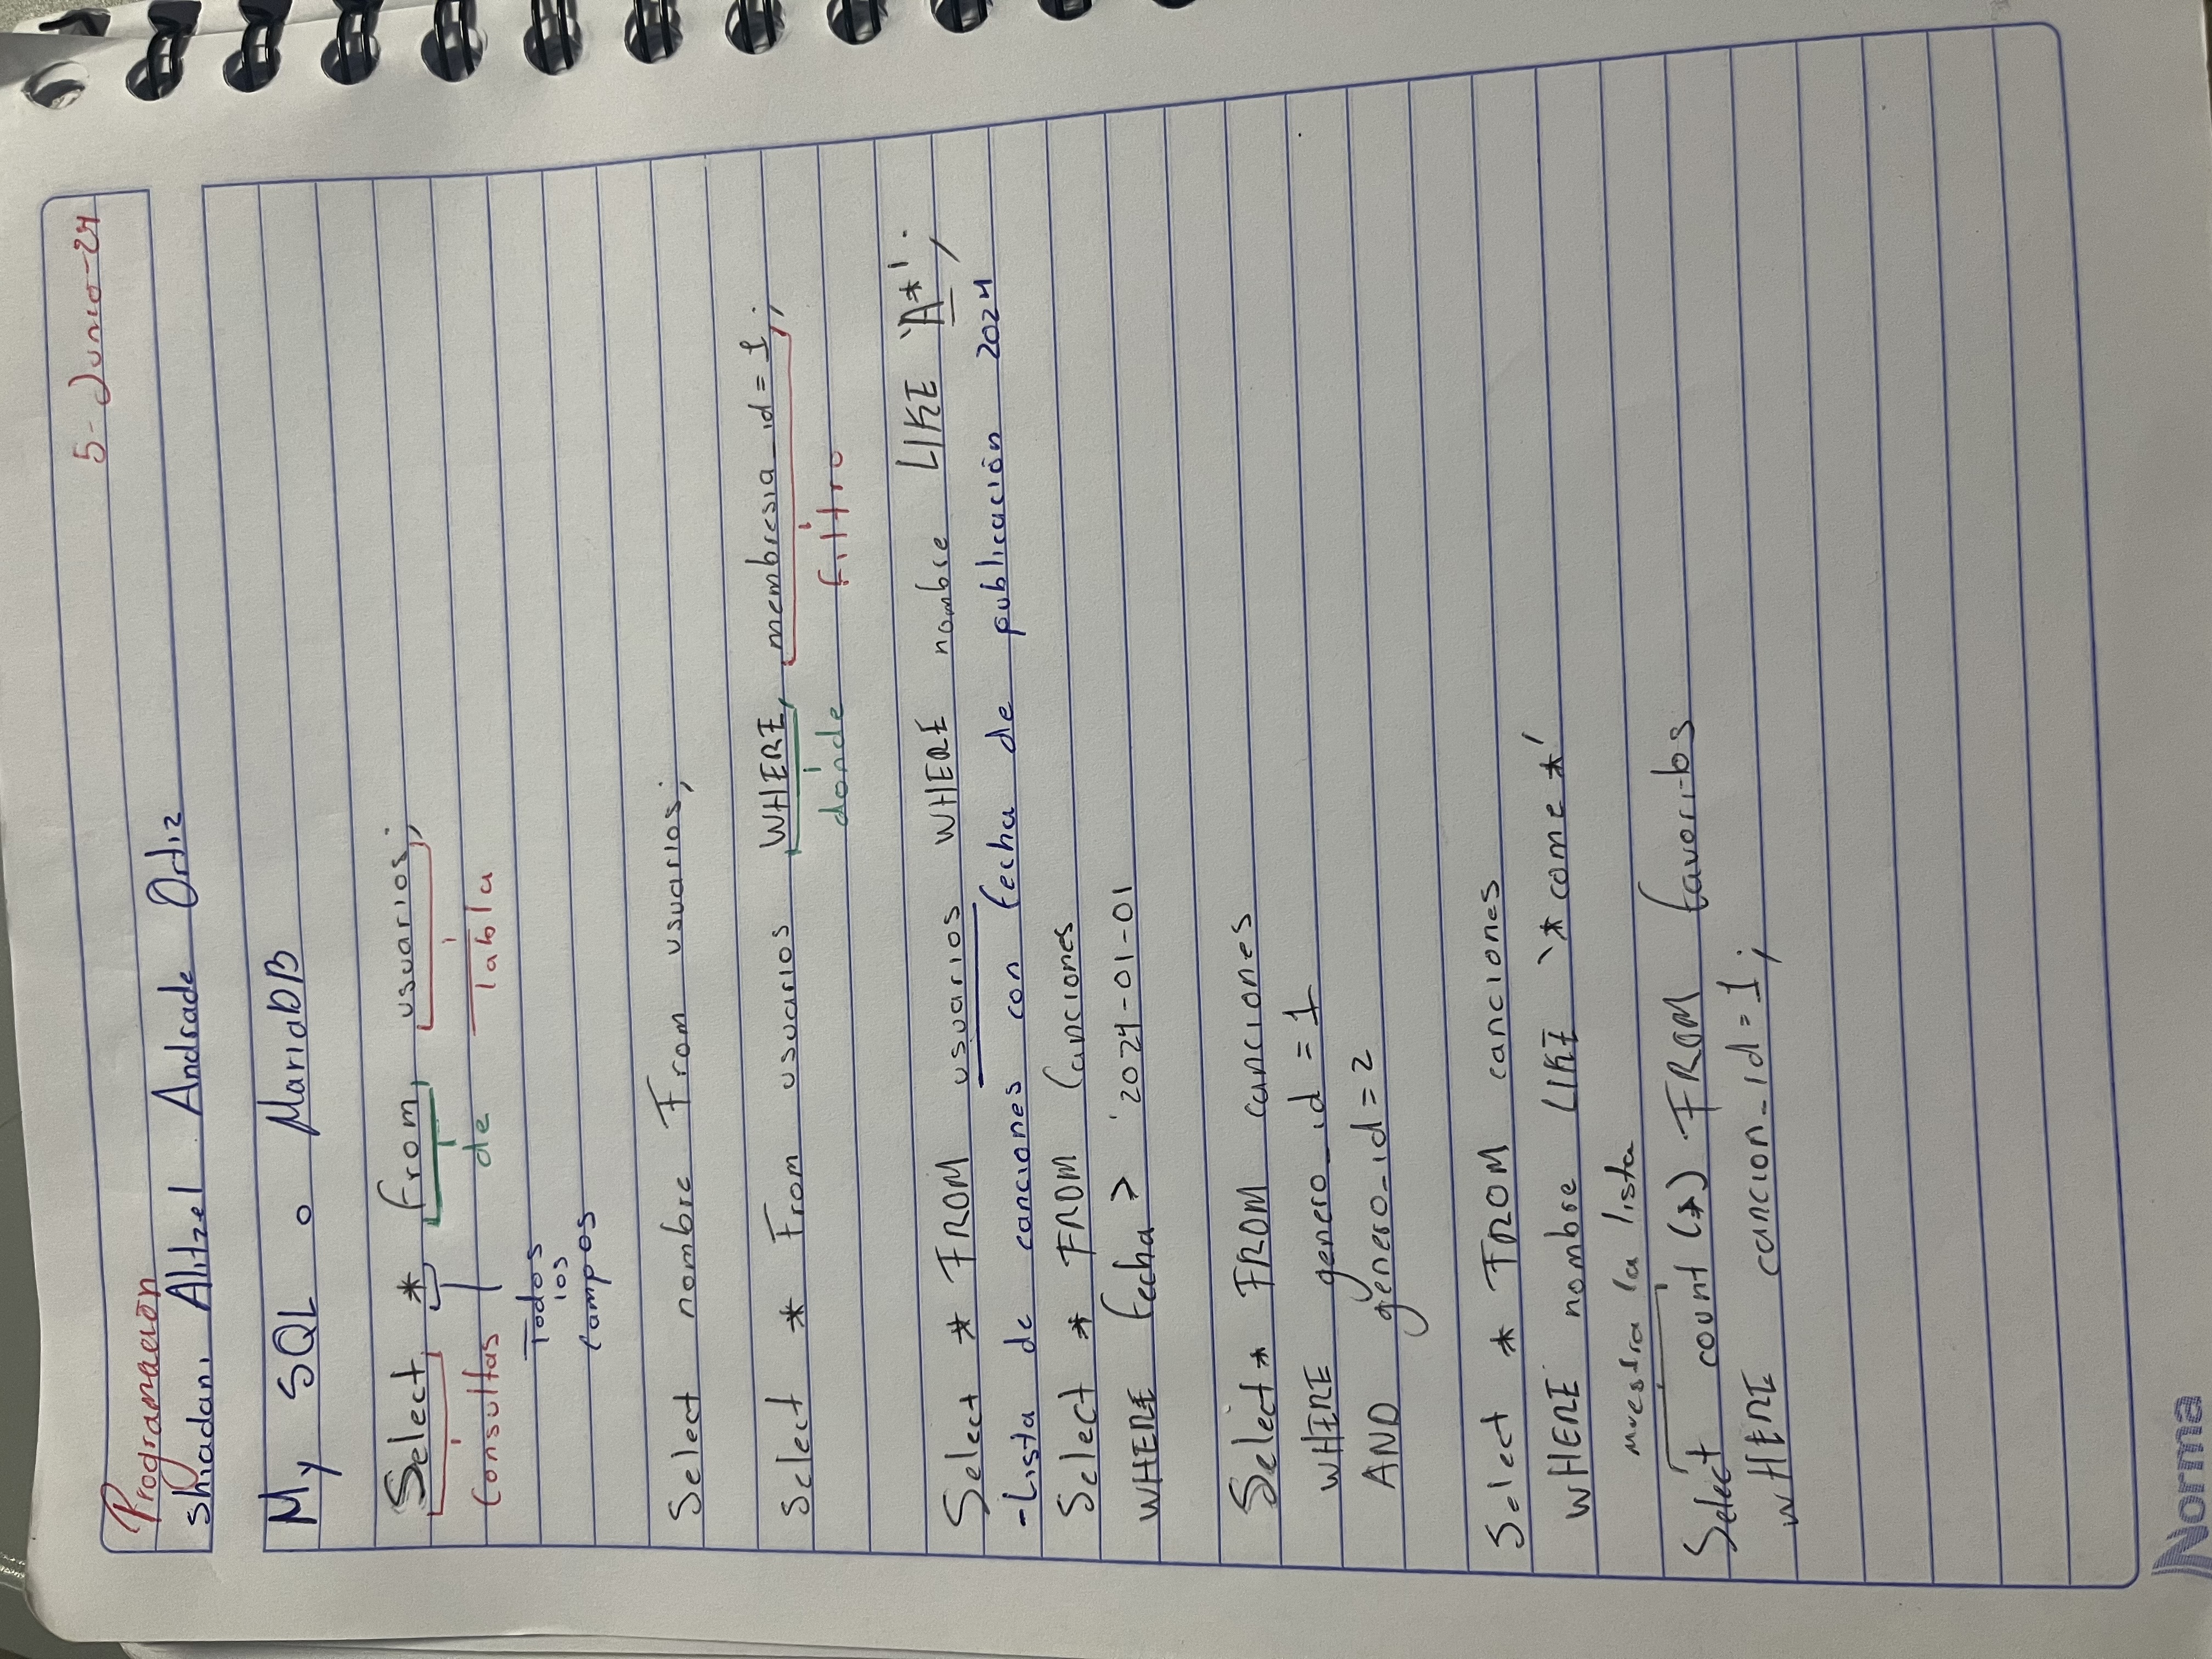 5-Junio-24
Programación
Shiadani Alitzel Andrade Ortiz
My SQL o MariaDB
Select * From usuarios;
Consultas de Tabla
Todos
los
campos
Select nombre From usuarios;
Select * From usuarios WHERE membresia_id = 1;
donde filtro
Select * FROM usuarios WHERE nombre LIKE 'A*';
-Lista de canciones con fecha de publicación 2024
Select * FROM Canciones
WHERE fecha > '2024-01-01
Select * FROM canciones
WHERE genero_id = 1
AND genero_id = 2
Select * FROM canciones
WHERE nombre LIKE '*come*'
muestra la lista
Select count (*) FROM favoritos
WHERE cancion_id = 1;
Norma